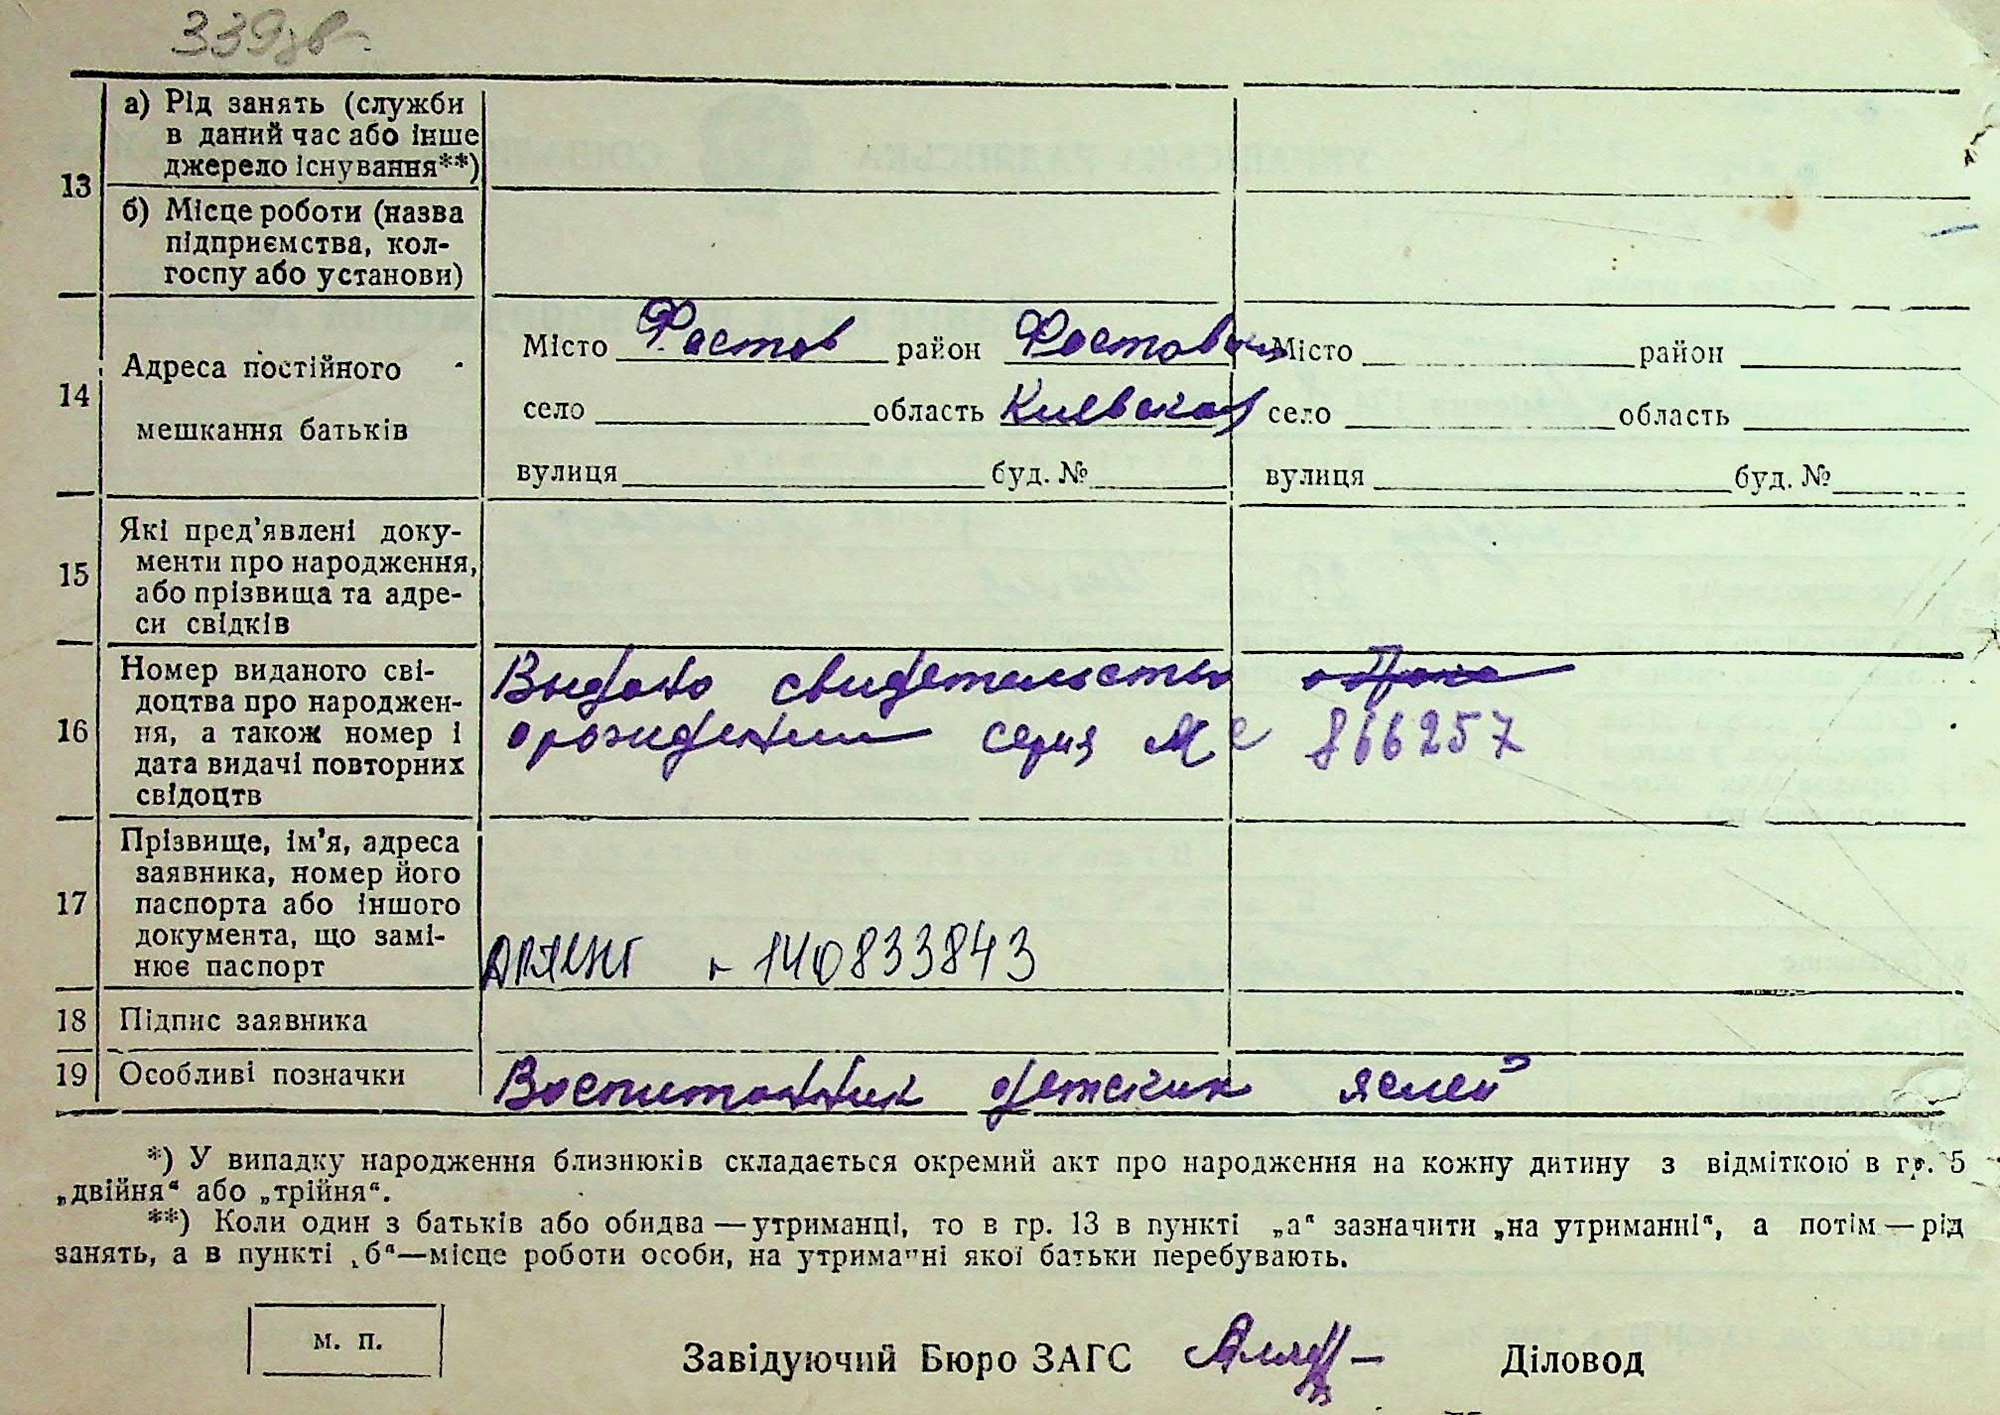 339зв
13
а) Рід занять (служби
в даний час або інше
джерело існування**)
б) Місце роботи (назва
підприємства, кол-
госпу або установи)
14
Адреса постійного
мешкання батьків
Місто Фастов район Фастовский
село область Киевская
вулиця буд. №
Місто район
село область
вулиця буд. №
15
Які пред'явлені доку-
менти про народження,
або прізвища та адре-
си свідків
16
Номер виданого сві-
доцтва про народжен-
ня, а також номер і
дата видачі повторних
свідоцтв
Выдано свидетельство
о рождении серия МС 866257
17
Прізвище, ім'я, адреса
заявника, номер його
паспорта або іншого
документа, що замі-
нює паспорт
140833843
18
Підпис заявника
19
Особливі позначки
Воспитанник детских яслей
*) У випадку народження близнюків складається окремий акт про народження на кожну дитину з відміткою в гр. 5
„двійня“ або „трійня“.
**) Коли один з батьків або обидва — утриманці, то в гр. 13 в пункті „а“ зазначити „на утриманні“, а потім — рід
занять, а в пункті „б“ — місце роботи особи, на утриманні якої батьки перебувають.
м. п.
Завідуючий Бюро ЗАГС
Діловод